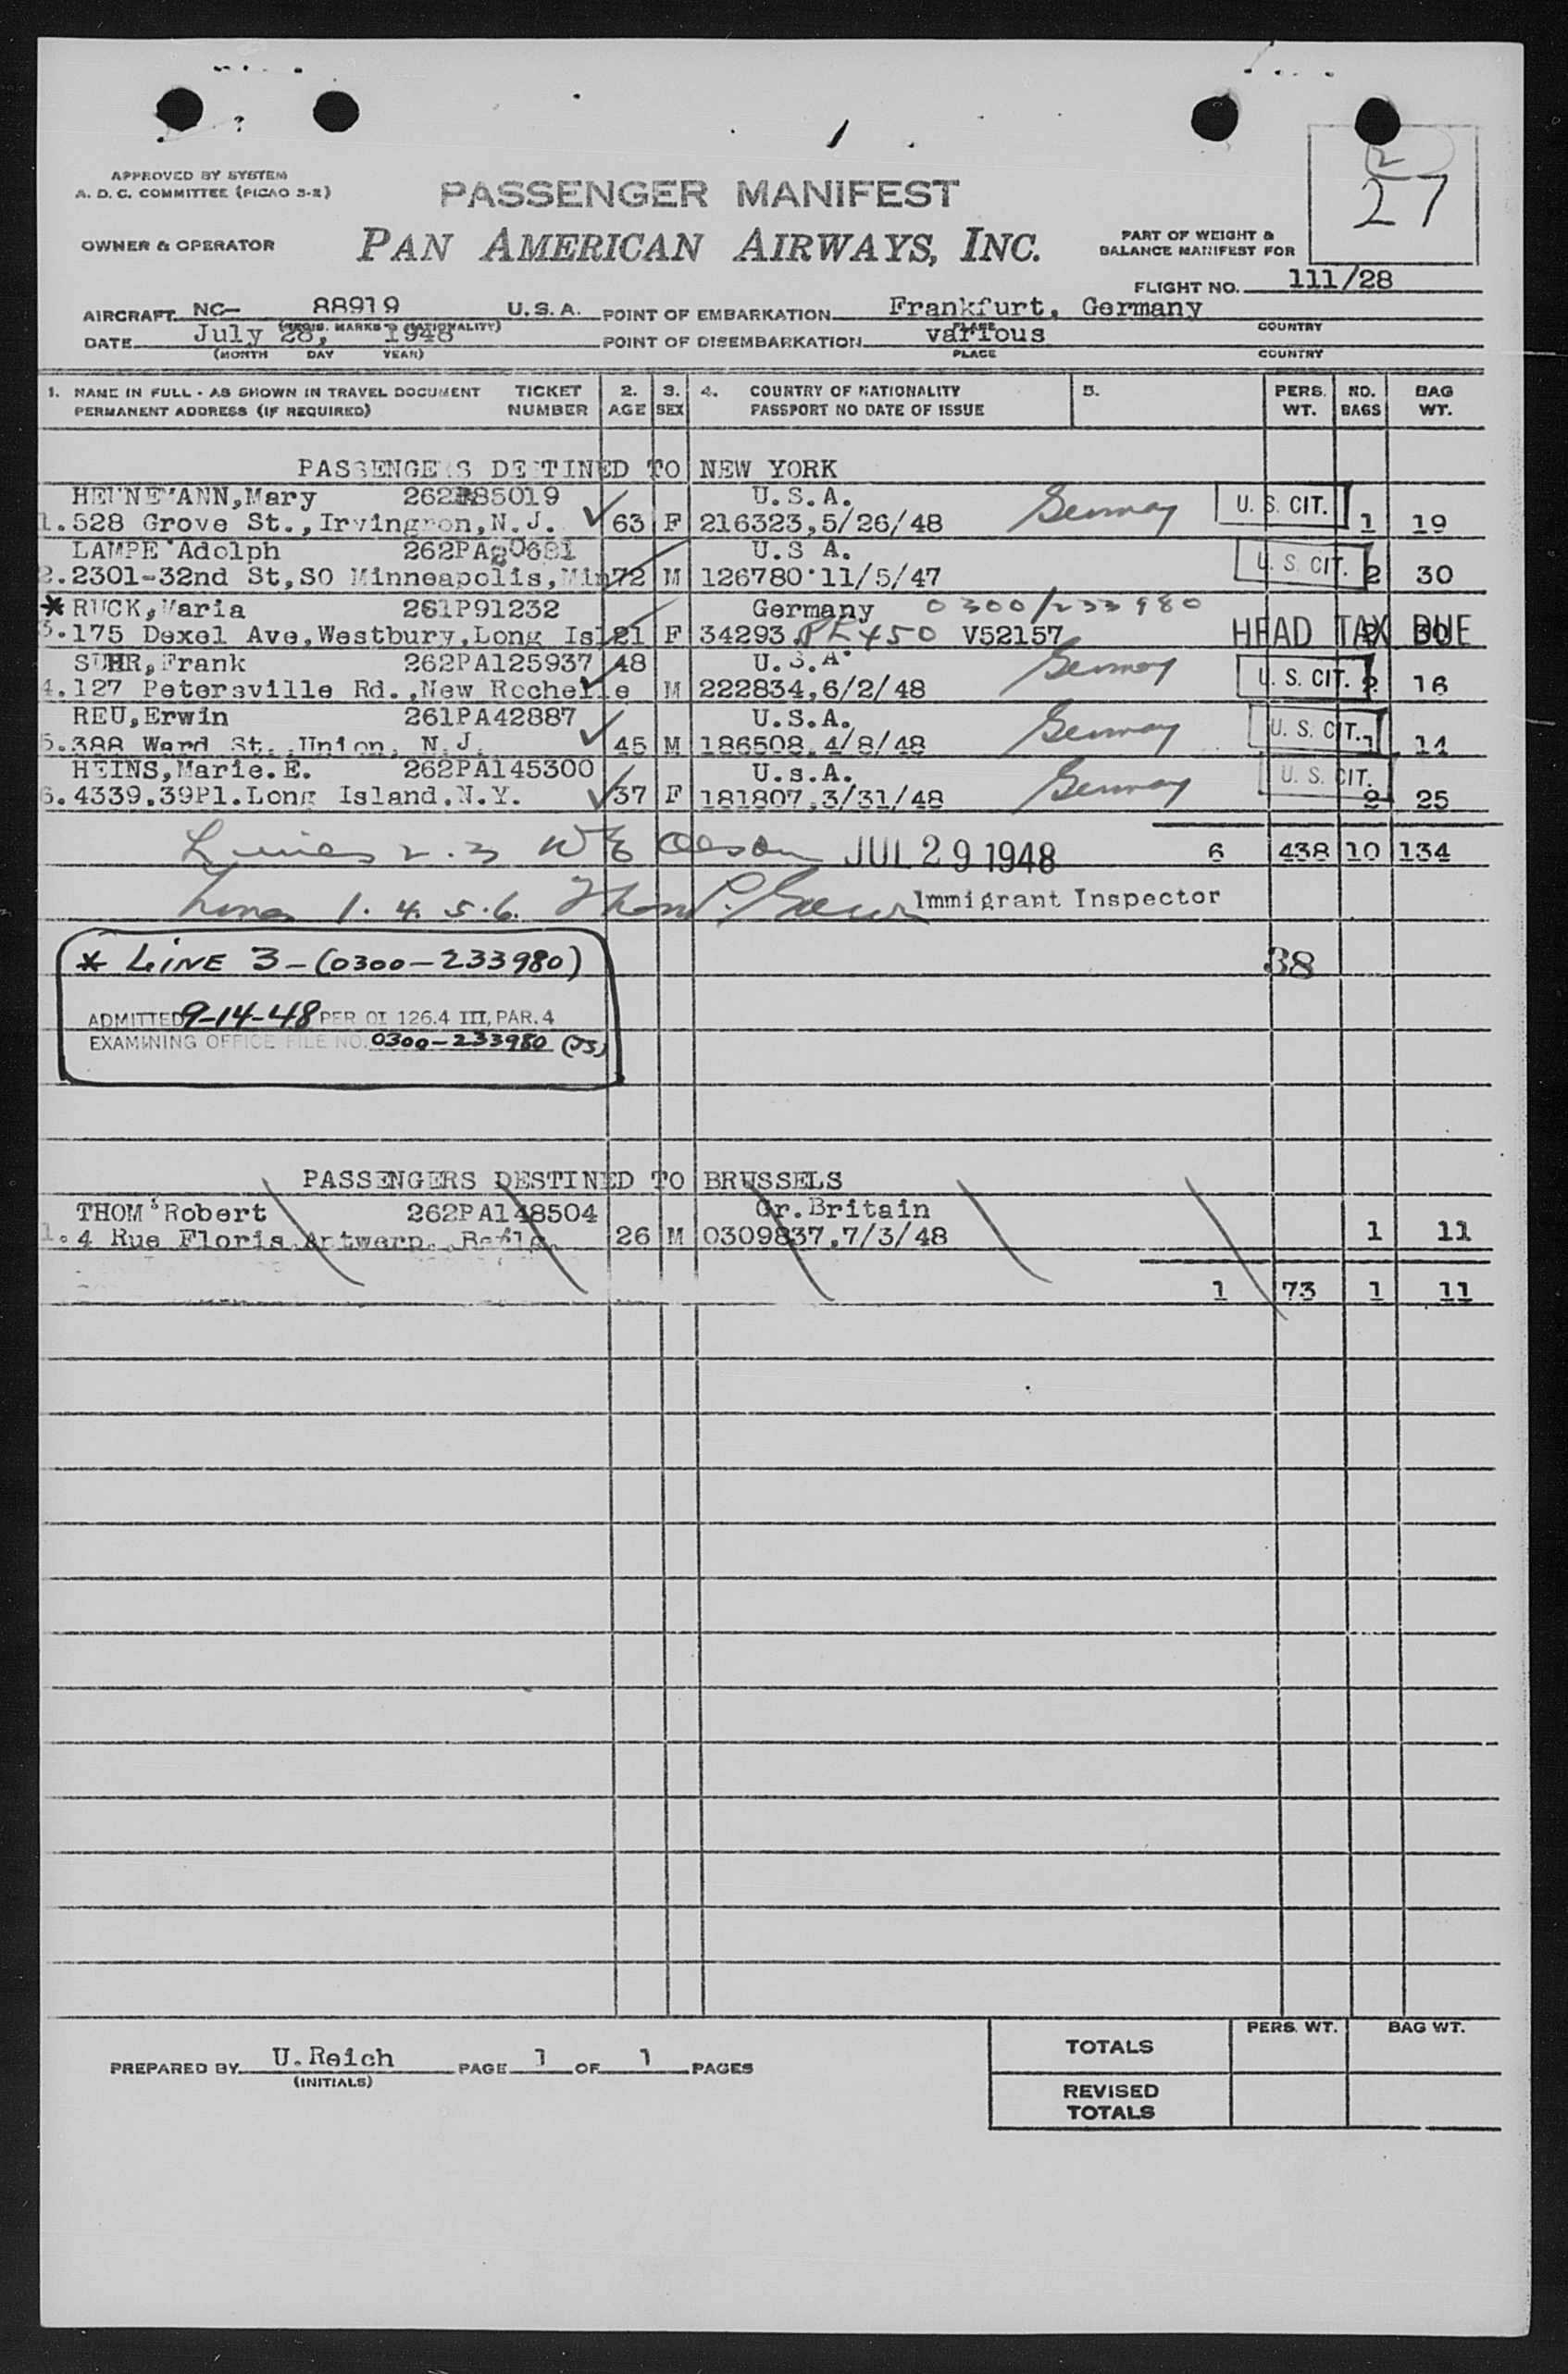 27
APPROVED BY SYSTEM
A. D. C. COMMITTEE (PICAO 3-2)
PASSENGER MANIFEST
OWNER & OPERATOR
PAN AMERICAN AIRWAYS, INC.
PART OF WEIGHT &
BALANCE MANIFEST FOR
FLIGHT NO. 111/28
AIRCRAFT NC- 88919 U. S. A. POINT OF EMBARKATION Frankfurt, Germany
(REGIS. MARKS & NATIONALITY) PLACE COUNTRY
DATE July 28, 1948 POINT OF DISEMBARKATION various
(MONTH DAY YEAR) PLACE COUNTRY
1. NAME IN FULL - AS SHOWN IN TRAVEL DOCUMENT TICKET 2. 3. 4. COUNTRY OF NATIONALITY 5. PERS. NO. BAG
PERMANENT ADDRESS (IF REQUIRED) NUMBER AGE SEX PASSPORT NO DATE OF ISSUE WT. BAGS WT.
PASSENGERS DESTINED TO NEW YORK
Mary U.S.A. Germany U. S. CIT.
1. 528 Grove St., N.J. 63 F 216323, 5/26/48 1 19
LAMPE Adolph U.S A. U. S. CIT.
2. 2301-32nd St, SO Minneapolis, Min 72 M 126780 11/5/47 2 30
* RUCK, Maria 261P91232 Germany 0300/233980
3. 175 Dexel Ave, Westbury, Long Isl 21 F 34293 V52157 HEAD TAX DUE
SUHR, Frank 262PA125937 48 U.S.A. Germany U. S. CIT.
4. 127 Petersville Rd., New Rochelle M 222834, 6/2/48 2 16
REU, Erwin 261PA42887 U.S.A. Germany U. S. CIT.
5. 388 Ward St. Union, N.J. 45 M 186508, 4/8/48 1 14
HEINS, Marie. E. 262PA145300 U.s.A. Germany U. S. CIT.
6. 4339, 39Pl. Long Island, N.Y. 37 F 181807, 3/31/48 2 25
Lines 2. 3 JUL 29 1948 6 438 10 134
Lines 1. 4. 5. 6. Immigrant Inspector
38
* LINE 3 - (0300-233980)
ADMITTED 9-14-48 PER OI 126.4 III, PAR. 4
EXAMINING OFFICE FILE NO. 0300-233980 (JS)
PASSENGERS DESTINED TO BRUSSELS
THOM Robert 262PA148504 Gr. Britain
1. 4 Rue Floris Antwerp 26 M 0309837, 7/3/48 1 11
1 73 1 11
PREPARED BY U. Reich PAGE 1 OF 1 PAGES
(INITIALS)
PERS. WT. BAG WT.
TOTALS
REVISED
TOTALS